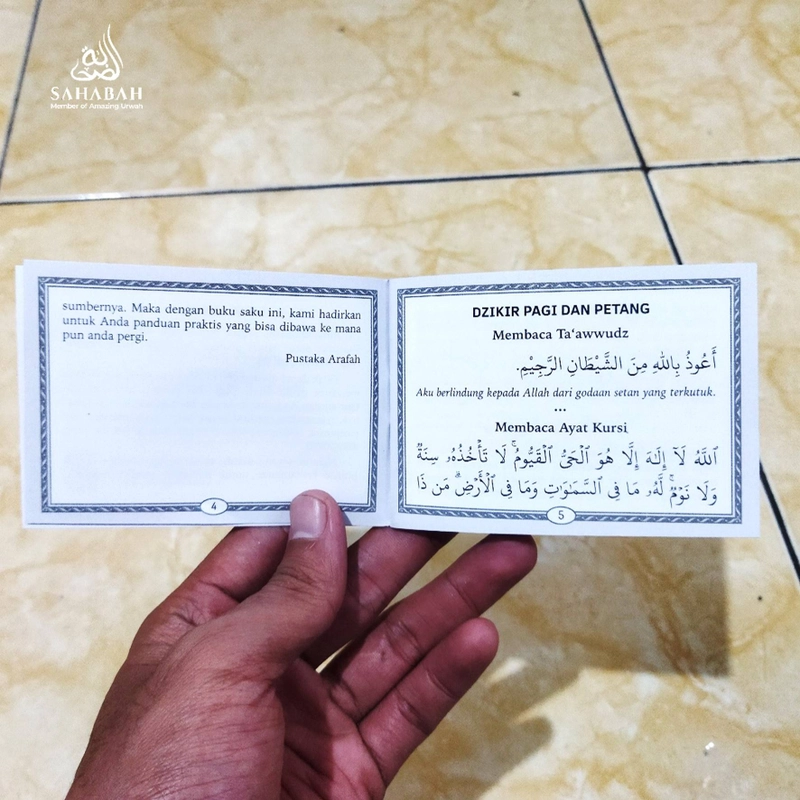 الصحابة
SAHABAH
Member of Amazing Urwah
sumbernya. Maka dengan buku saku ini, kami hadirkan
untuk Anda panduan praktis yang bisa dibawa ke mana
pun anda pergi.
Pustaka Arafah
4
DZIKIR PAGI DAN PETANG
Membaca Ta‘awwudz
أَعُوذُ بِاللهِ مِنَ الشَّيْطَانِ الرَّجِيْمِ.
Aku berlindung kepada Allah dari godaan setan yang terkutuk.
•••
Membaca Ayat Kursi
ٱللَّهُ لَآ إِلَٰهَ إِلَّا هُوَ ٱلْحَىُّ ٱلْقَيُّومُ ۚ لَا تَأْخُذُهُۥ سِنَةٌ
وَلَا نَوْمٌ ۚ لَّهُۥ مَا فِى ٱلسَّمَٰوَٰتِ وَمَا فِى ٱلْأَرْضِ ۗ مَن ذَا
5